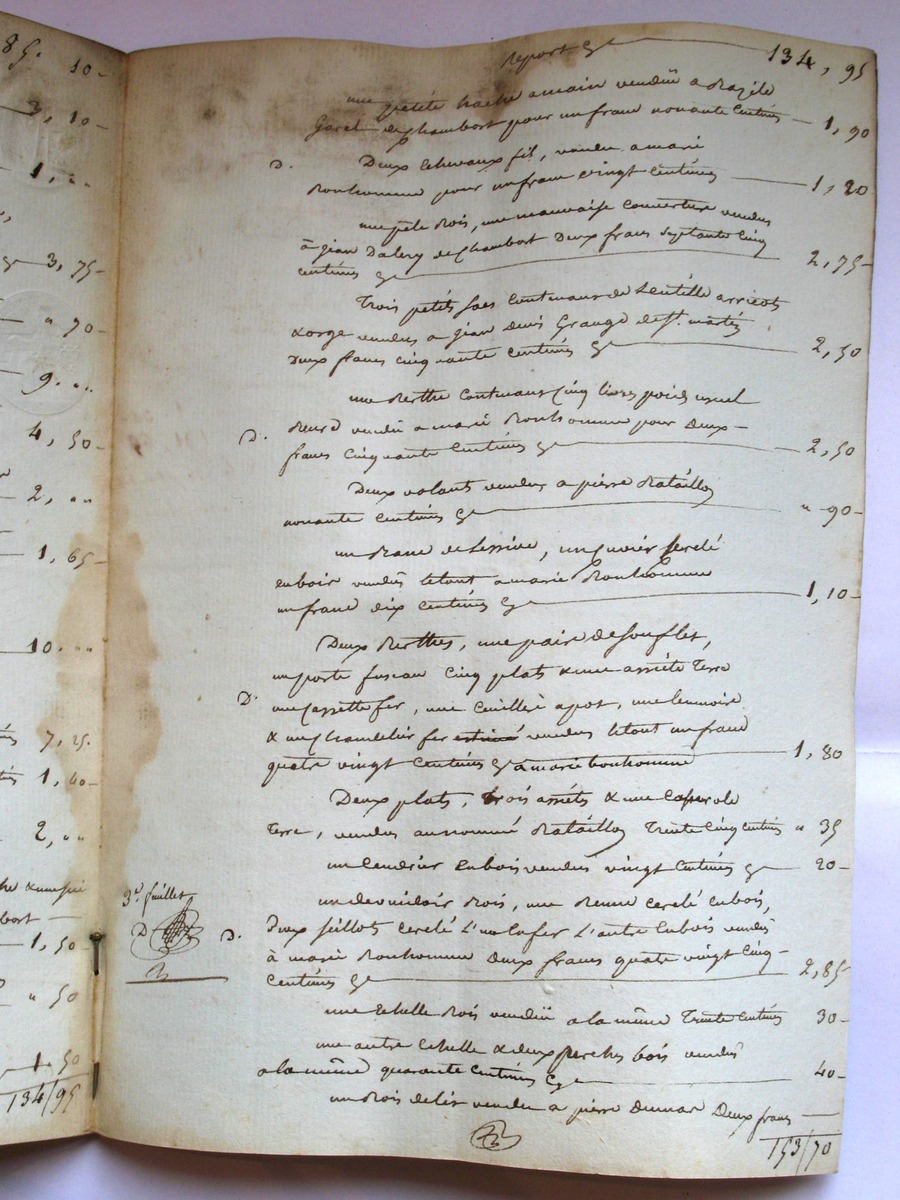 85. 10-
3, 10-
1, "
3, 75-
" 70-
9. "
4, 50-
2, "
1, 65-
10. "
7, 25.
1, 40-
2, "
1, 50
" 50
1. 50
134/95
report 134, 95
une petite hache amain vendüe a
de Chambost pour un franc nonante Centimes 1, 90
D. Deux Chevaux fil, vendu a marie
Bonhomme pour un franc vingt centimes 1, 20
une pele Bois, une mauvaise couverture vendues
à jean Dalery de Chambost Deux francs Septante Cinq
centimes 2, 75-
Trois petits sacs Contenans de Lentille arricots
& orge vendus a jean Denis Grange de St. martin
Deux francs cinquante centimes 2, 50
une Berthe Contenans Cinq livres poids usuel
D. Beure vendüe a marie Bonhomme pour Deux-
francs Cinquante Centimes 2, 50
Deux volants vendus a pierre Bataillon
nonante centimes " 90-
un de Lessive, un Cuvier Serclé
en bois vendûs letout a marie Bonhomme
un franc dix centimes 1, 10-
Deux Berthes, une paire de Souflet,
un porte fuseau Cinq plats & une assiéte Terre
D. une Cassette fer, une Cuillié a pot, une
& un Chandelier fer estimé vendus letout un franc
quatre vingt Centimes a marie bonhomme 1, 80
Deux plats, trois assiéts & une Casserole
Terre, vendus au nommé Bataillon Trente Cinq centimes " 35
un Cendrier en bois vendus vingt Centimes 20-
3e. juillet
un devindoir Bois, une Benne cerclé en bois,
D. Deux Seillots Cerclé L'un en fer L'autre en bois vendu
à marie Bonhomme Deux francs quatre vingt Cinq-
Centimes 2, 85
une Echelle Bois vendüe a la même Trente Centimes 30-
une autre Echelle & deux perches bois vendûs
a la même quarante Centimes 40-
un Bois de lit vendu a pierre Dumas Deux francs
153/70